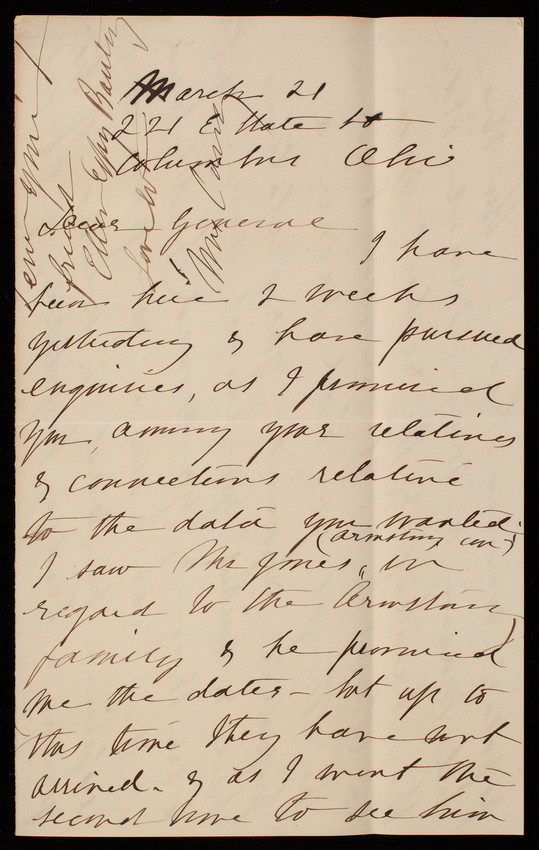 March 21
221 E State St
Columbus Ohio
Dear General
I have
been here 2 weeks
yesterday & have pursued
enquiries, as I promised
you, among your relatives
& connections relative
to the data you wanted.
I saw Mr Jones, (Armstrong con) in
regard to the Armstrong
family & he promised
me the dates - but up to
this time they have not
arrived. & as I went the
second time to see him
ever yours
friend
Ellen
Love to
Mrs